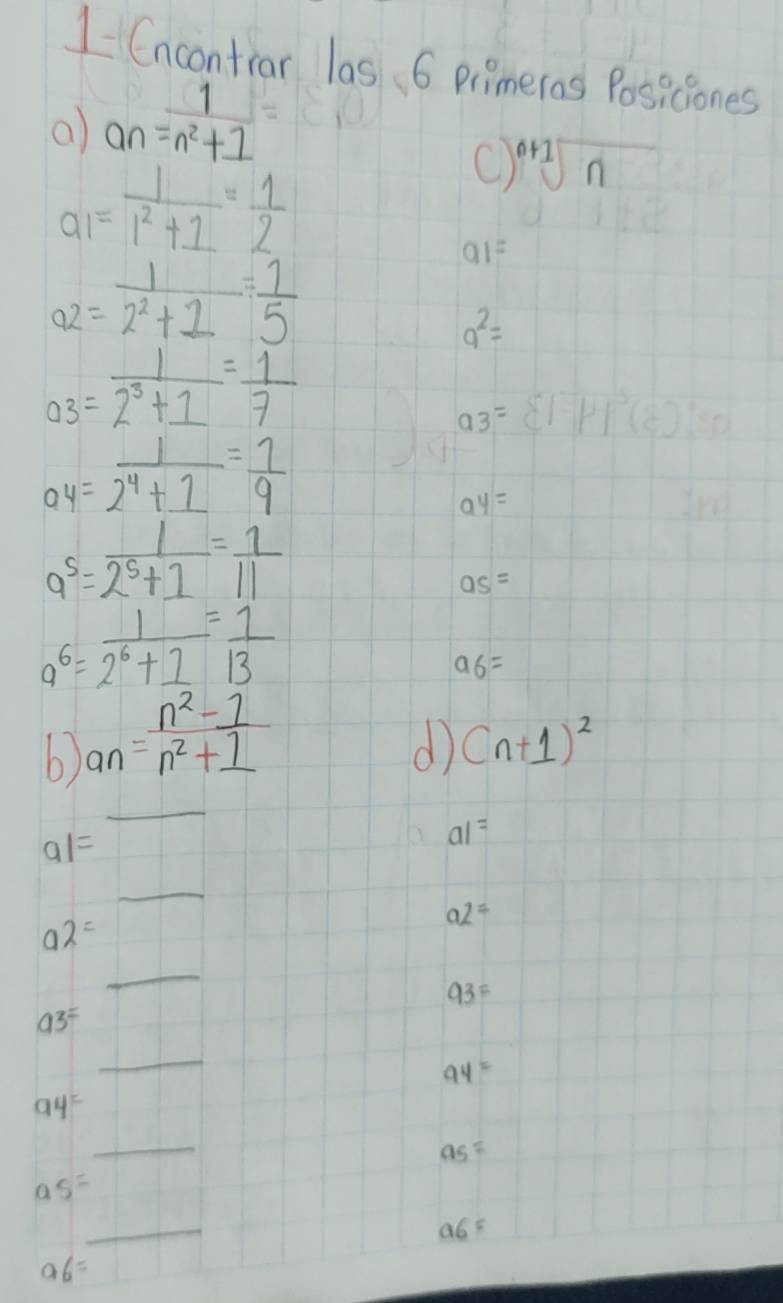 1- Encontrar las 6 Primeras Posiciones
a) an = 1/n²+1 =
a1= 1/1²+1 = 1/2
a2= 1/2²+1 = 1/5
a3= 1/2³+1 = 1/7
a4= 1/2⁴+1 = 1/9
a⁵= 1/2⁵+1 = 1/11
a⁶= 1/2⁶+1 = 1/13
b) an = n²-1/n²+1
a1=
a2=
a3=
a4=
a5=
a6=
c) ⁿ⁺¹√n
a1=
a²=
a3=
a4=
a5=
a6=
d) (n+1)²
a1=
a2=
a3=
a4=
a5=
a6=